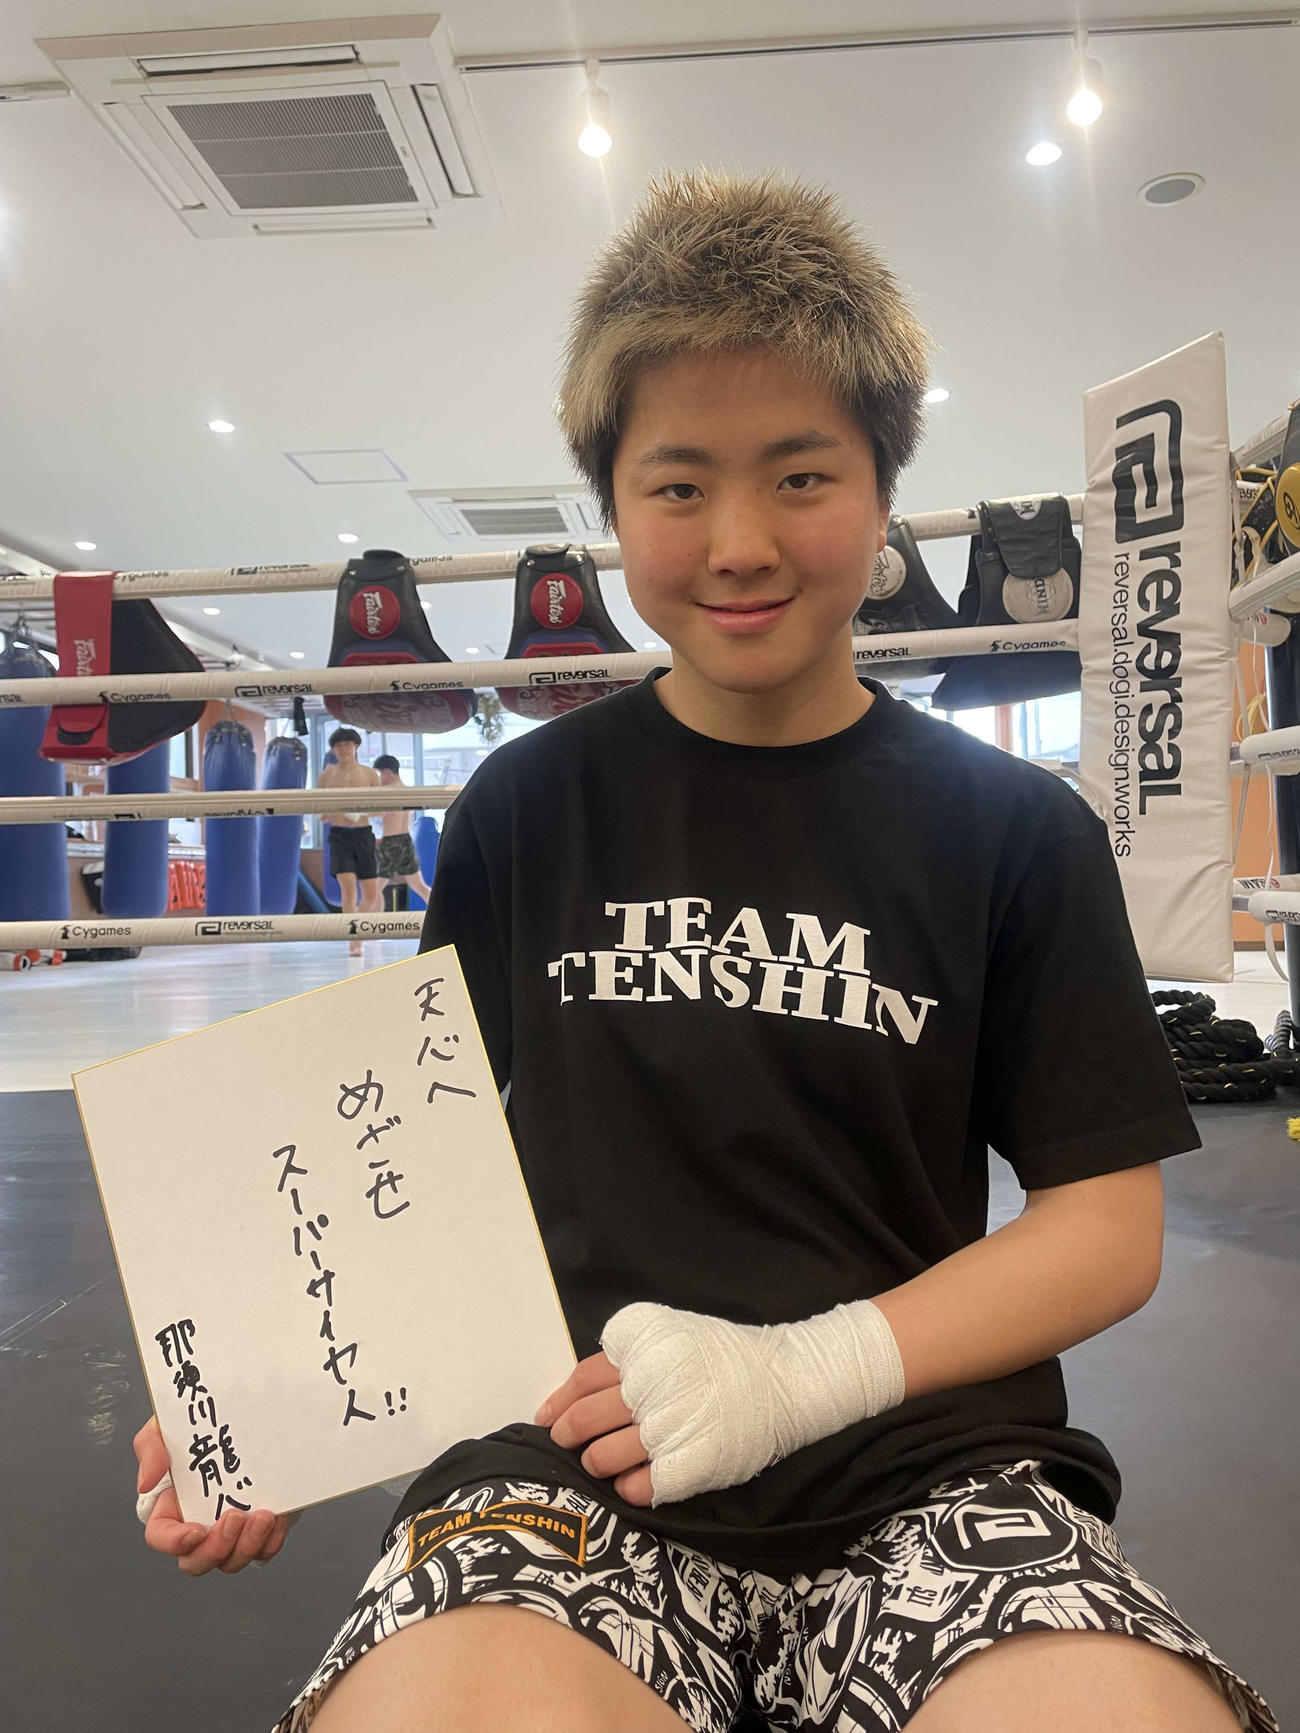 天心へ
めざせ
スーパーサイヤ人!!
那須川龍心
TEAM
TENSHIN
TEAM TENSHIN
reversal
reversal.dogi.design.works
Cygames
reversal
Cygames
reversal
Cygames
reversal
reversal
Cygames
Cygames
reversal
Cygames
Fairtex
Fairtex
Fairtex